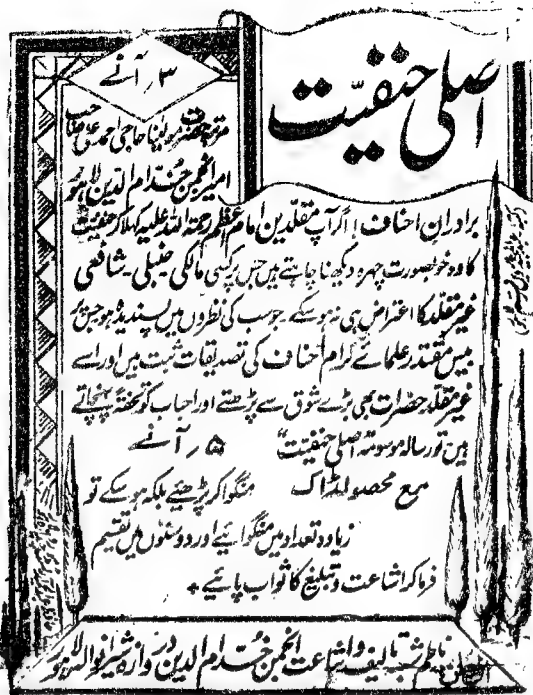 اصلی حنفیت
۳؍ آنے
مرتبہ حضرت مولینا حاجی احمد علی صاحب
امیر انجمن خدام الدین لاہور
برادرانِ احناف! اگر آپ مقلدین امام اعظم رحمۃ اللہ علیہ کہلا کر حنفیت
کا وہ خوبصورت چہرہ دیکھنا چاہتے ہیں جس پر کسی مالکی۔ حنبلی۔ شافعی
غیر مقلد کا اعتراض ہی نہ ہو سکے۔ جو سب کی نظروں میں پسندیدہ ہو جس پر
بیس مقتدر علمائے کرام احناف کی تصدیقات ثبت ہیں اور اسے
غیر مقلد حضرات بھی بڑے شوق سے پڑھتے اور احباب کو تحفۃً پہنچاتے
ہیں تو رسالہ موسومہ "اصلی حنفیت" ۵؍ آنے
مع محصولڈاک منگوا کر پڑھیئے بلکہ ہو سکے تو
زیادہ تعداد میں منگوائیے اور دوستوں میں تقسیم
فرما کر اشاعت و تبلیغ کا ثواب پائیے +
ناظم شعبہ تالیف و اشاعت انجمن خدام الدین دروازہ شیرانوالہ لاہور